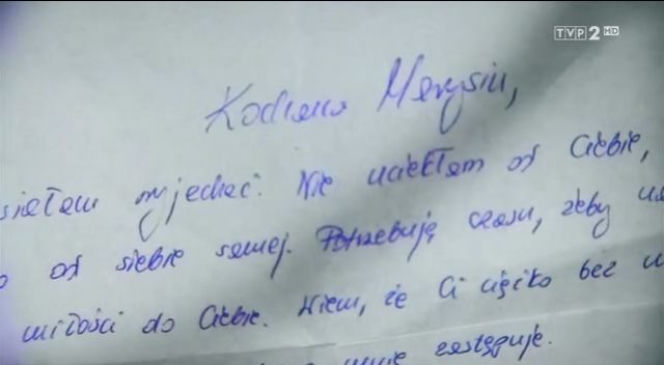 TVP2 HD
Kochana Marysiu,
siałam wyjechać. Nie uciekłam od Ciebie,
od siebie samej. Potrzebuję czasu, żeby
miłości do Ciebie. Wiem, że Ci ciężko beze
mnie zastępuje.